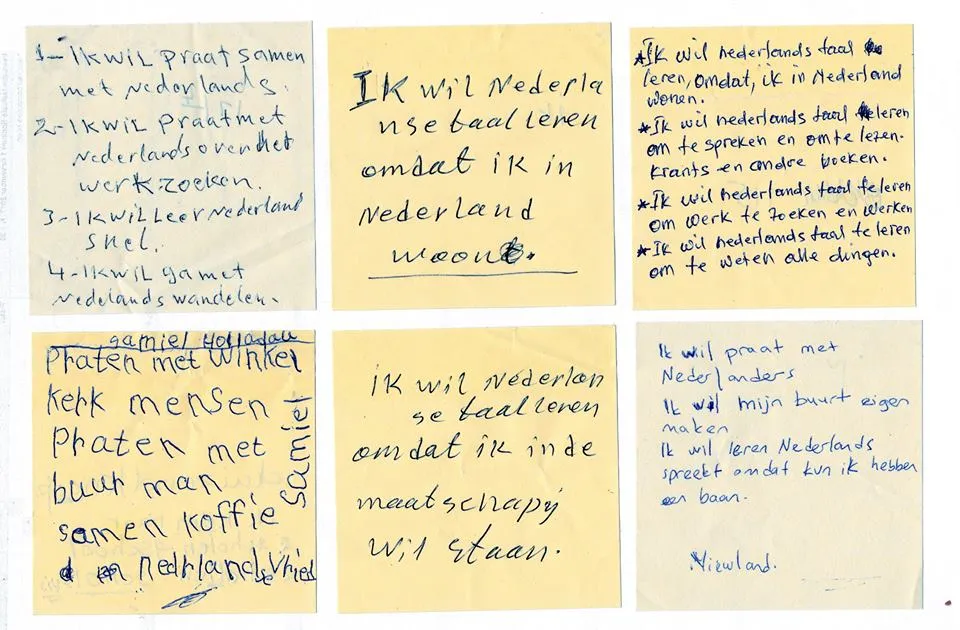 1- Ik wil praat samen
met Nederlands.
2- Ik wil praat met
Nederlands over het
werk zoeken.
3- Ik wil leer Nederland
snel.
4- Ik wil ga met
Nedelands wandelen.
Ik wil Nederla
nse taal leren
omdat ik in
Nederland
woont.
*Ik wil nederlands taal
leren, omdat, ik in Nederland
wonen.
*Ik wil nederlands taal leren
om te spreken en om te lezen.
krants en andre boeken.
*Ik wil nederlands taal te leren
om werk te zoeken en werken
*Ik wil nederlands taal te leren
om te weten alle dingen.
samiel
Phaten met winkel
kerk mensen
Phaten met
buur man
samen koffie
nedrlandse vried
samiel
ik wil Nederlan
se taal leren
omdat ik in de
maatschapij
wil staan.
Ik wil praat met
Nederlanders
Ik wil mijn buurt eigen
maken
Ik wil leren Nederlands
spreekt omdat kun ik hebben
een baan.
Niewland.